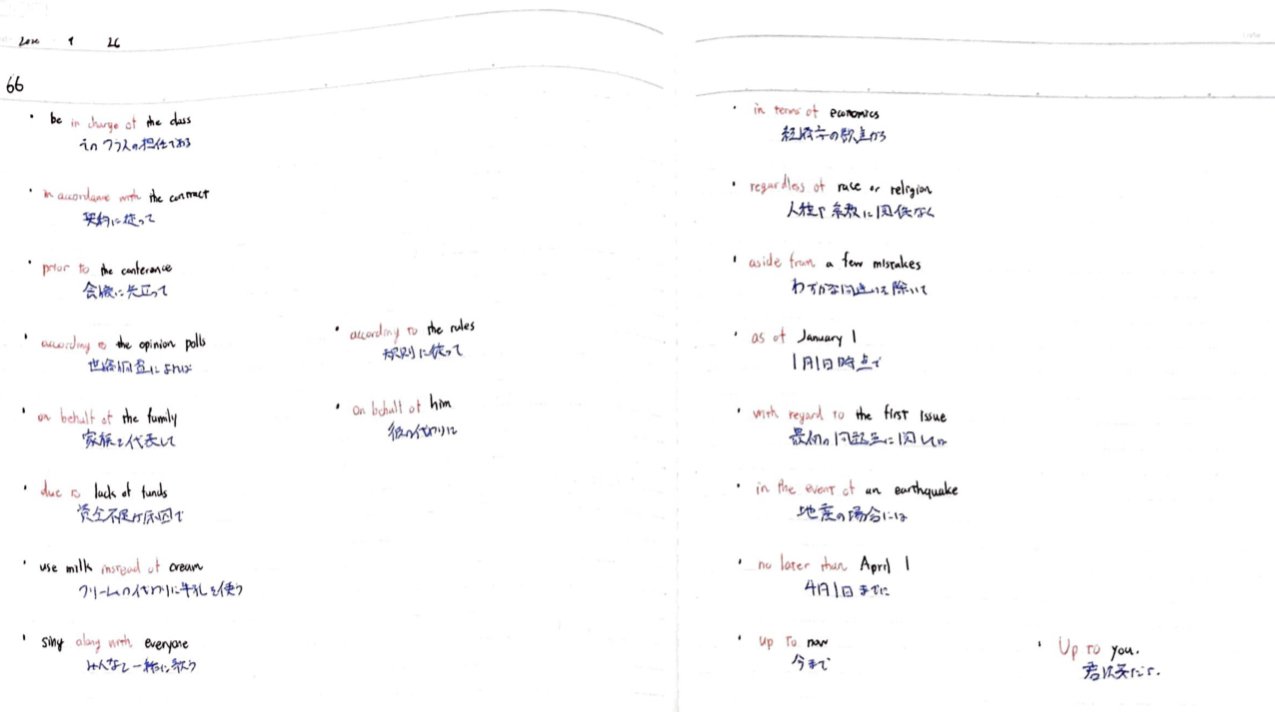 66
· be in charge of the class
そのクラスの担任である
· in accordance with the contract
契約に従って
· prior to the conference
会議に先立って
· according to the opinion polls
世論調査によれば
· according to the rules
規則に従って
· on behalf of the family
家族を代表して
· on behalf of him
彼の代わりに
· due to lack of funds
資金不足が原因で
· use milk instead of cream
クリームの代わりに牛乳を使う
· sing along with everyone
みんなと一緒に歌う
· in terms of economics
経済学の観点から
· regardless of race or religion
人種や宗教に関係なく
· aside from a few mistakes
わずかな間違いを除いて
· as of January 1
1月1日時点で
· with regard to the first issue
最初の問題に関して
· in the event of an earthquake
地震の場合には
· no later than April 1
4月1日までに
· up to now
今まで
· Up to you.
君次第だ